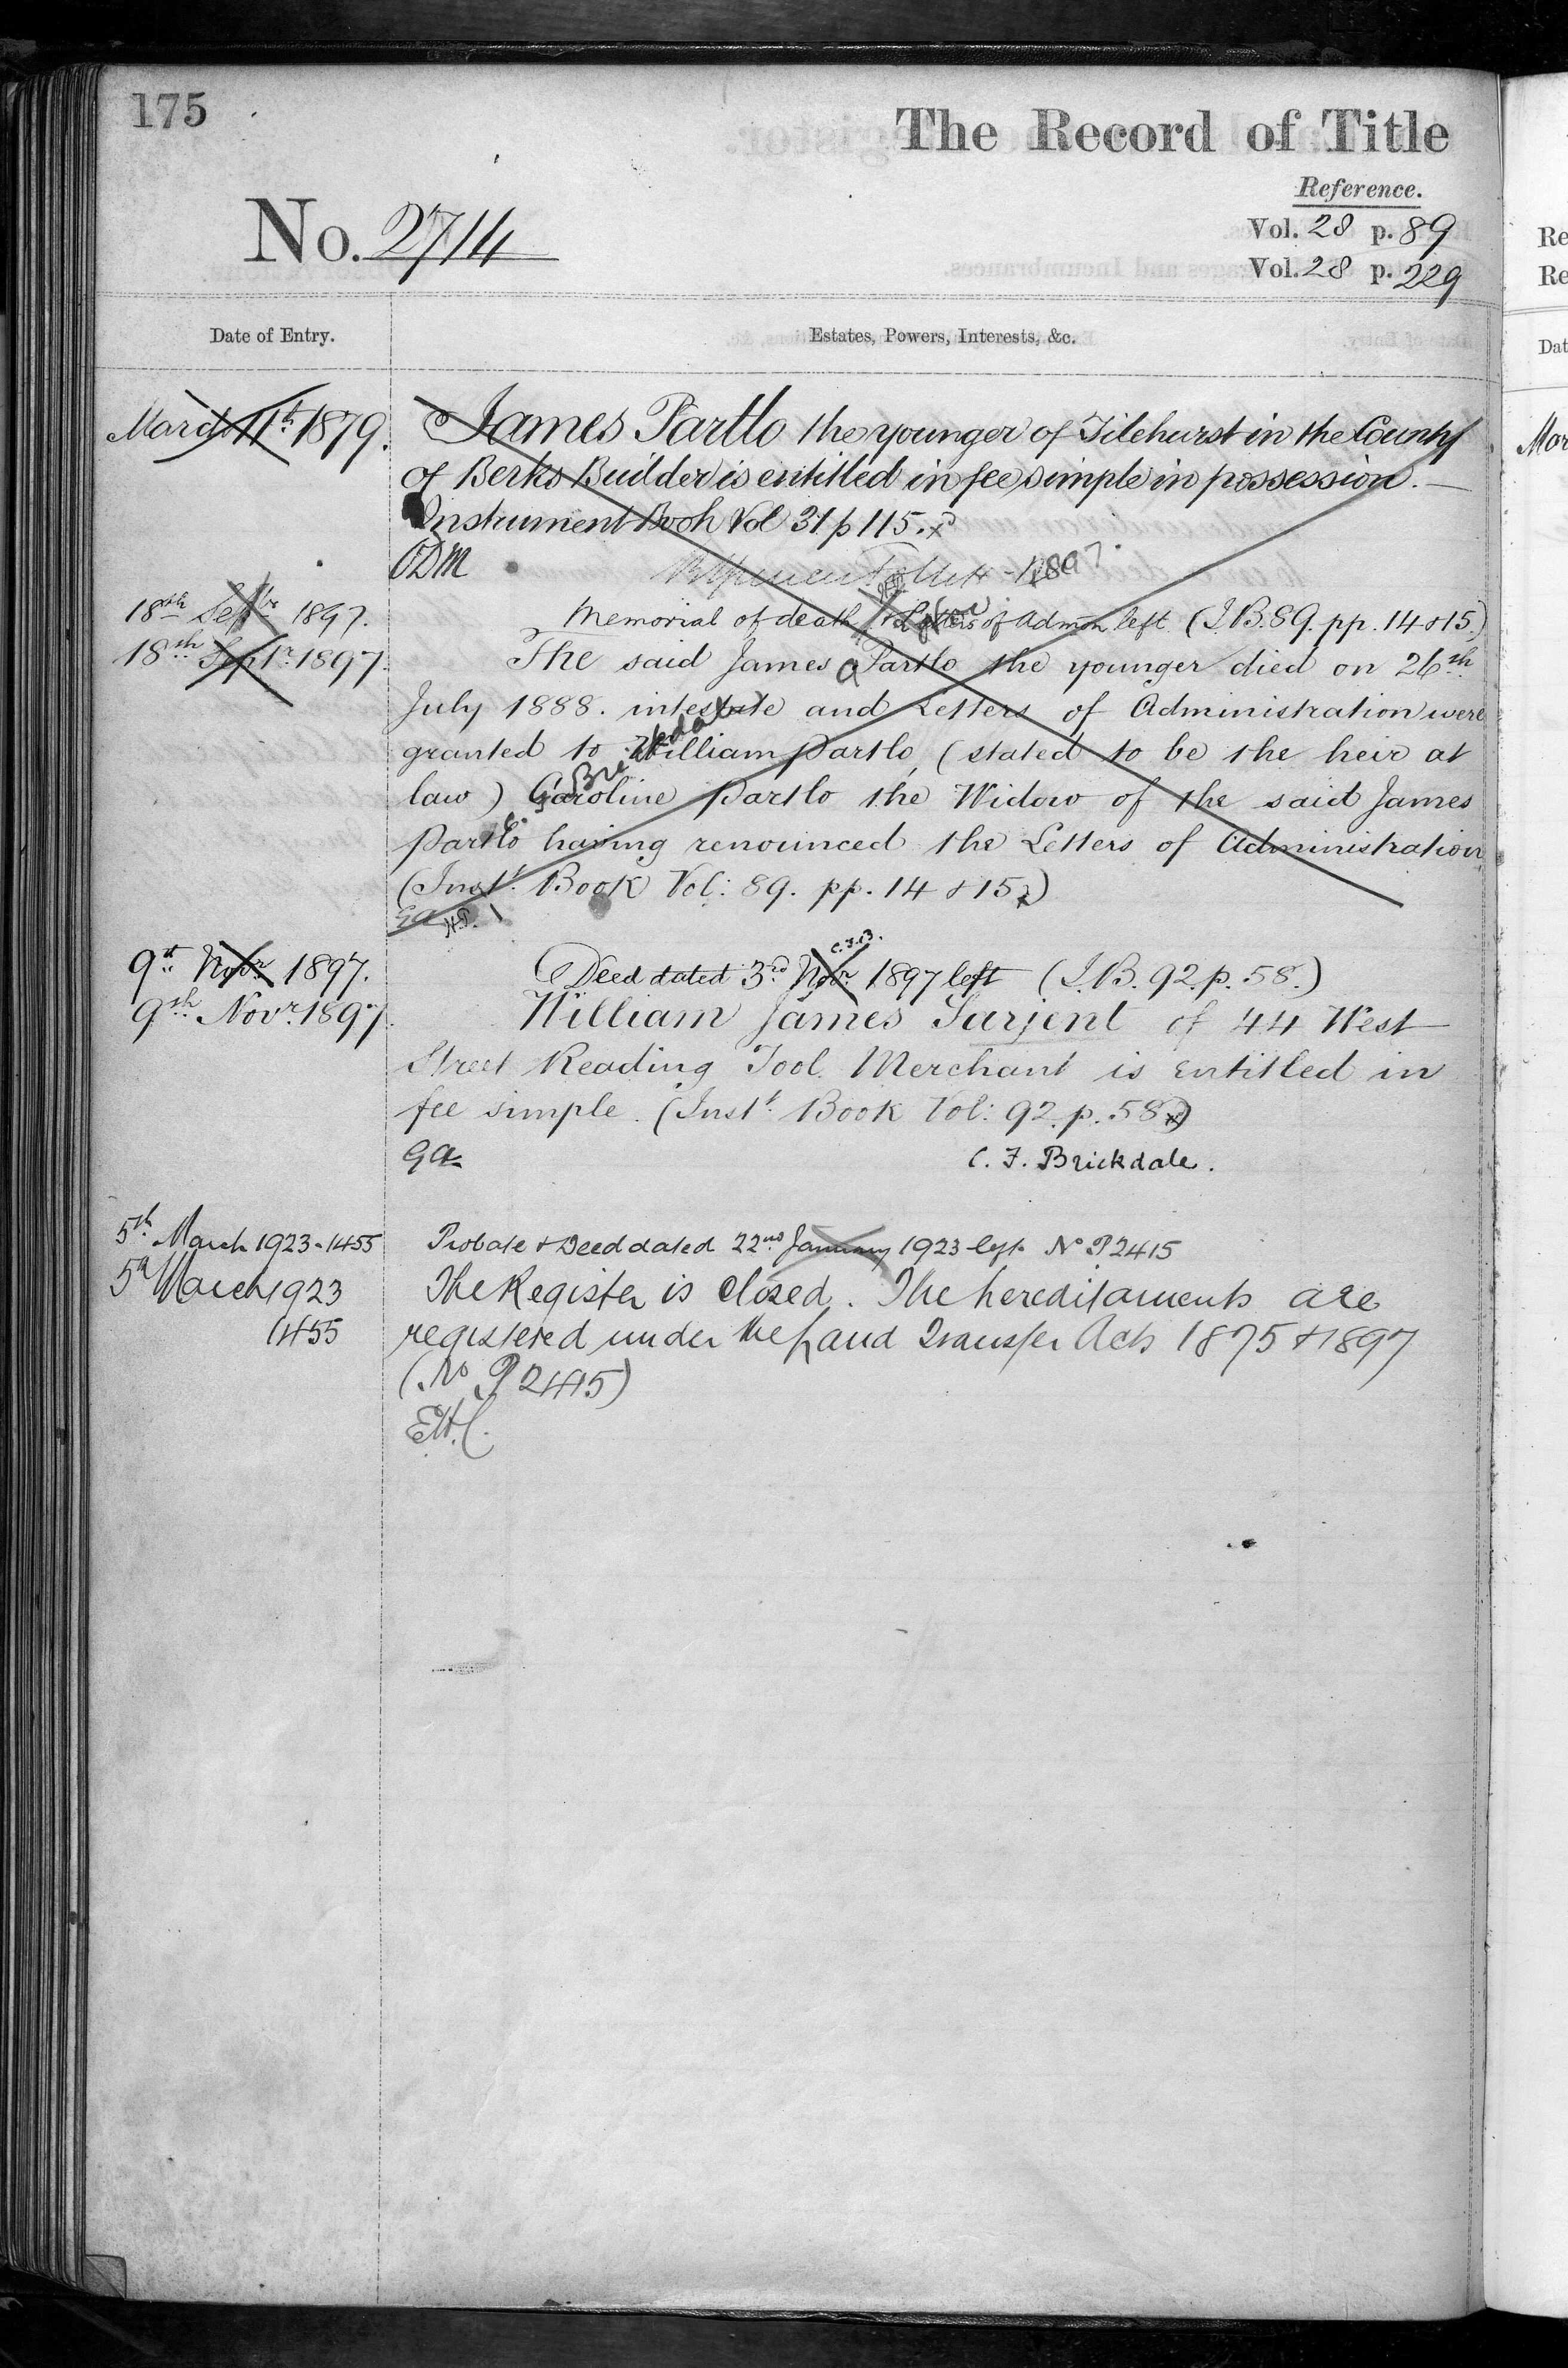 175
The Record of Title
Reference.
No. 2714
Vol. 28 p. 89
Vol. 28 p. 229
Date of Entry.
Estates, Powers, Interests, &c.
March 11th 1879.
James Partlo the younger of Tilehurst in the County
of Berks Builder is entitled in fee simple in possession. —
Instrument Book Vol 31 p 115.
ODM
1897
18th Septr 1897.
Memorial of death & Letters of Admon left (I.B. 89. pp. 14 & 15)
18th Septr 1897.
The said James Partlo the younger died on 26th
July 1888. intestate and Letters of Administration were
granted to William Partlo, (stated to be the heir at
law) Caroline Partlo the Widow of the said James
Partlo having renounced the Letters of Administration
(Instt. Book Vol: 89. pp. 14 & 15)
C. F. Brickdale
GA
9th Novr 1897.
Deed dated 3rd Novr 1897 left (I.B. 92. p. 58.)
C.F.B.
9th Novr. 1897.
William James Sarjent of 44 West
Street Reading Tool Merchant is entitled in
fee simple. (Instt. Book Vol: 92. p. 58)
GA
C. F. Brickdale.
5th March 1923 - 1455
Probate & Deed dated 22nd January 1923 left No P2415
5th March 1923
1455
The Register is closed. The hereditaments are
registered under the Land Transfer Acts 1875 & 1897
(No P 2415)
E.H.C.
Re
Re
Dat
Mar